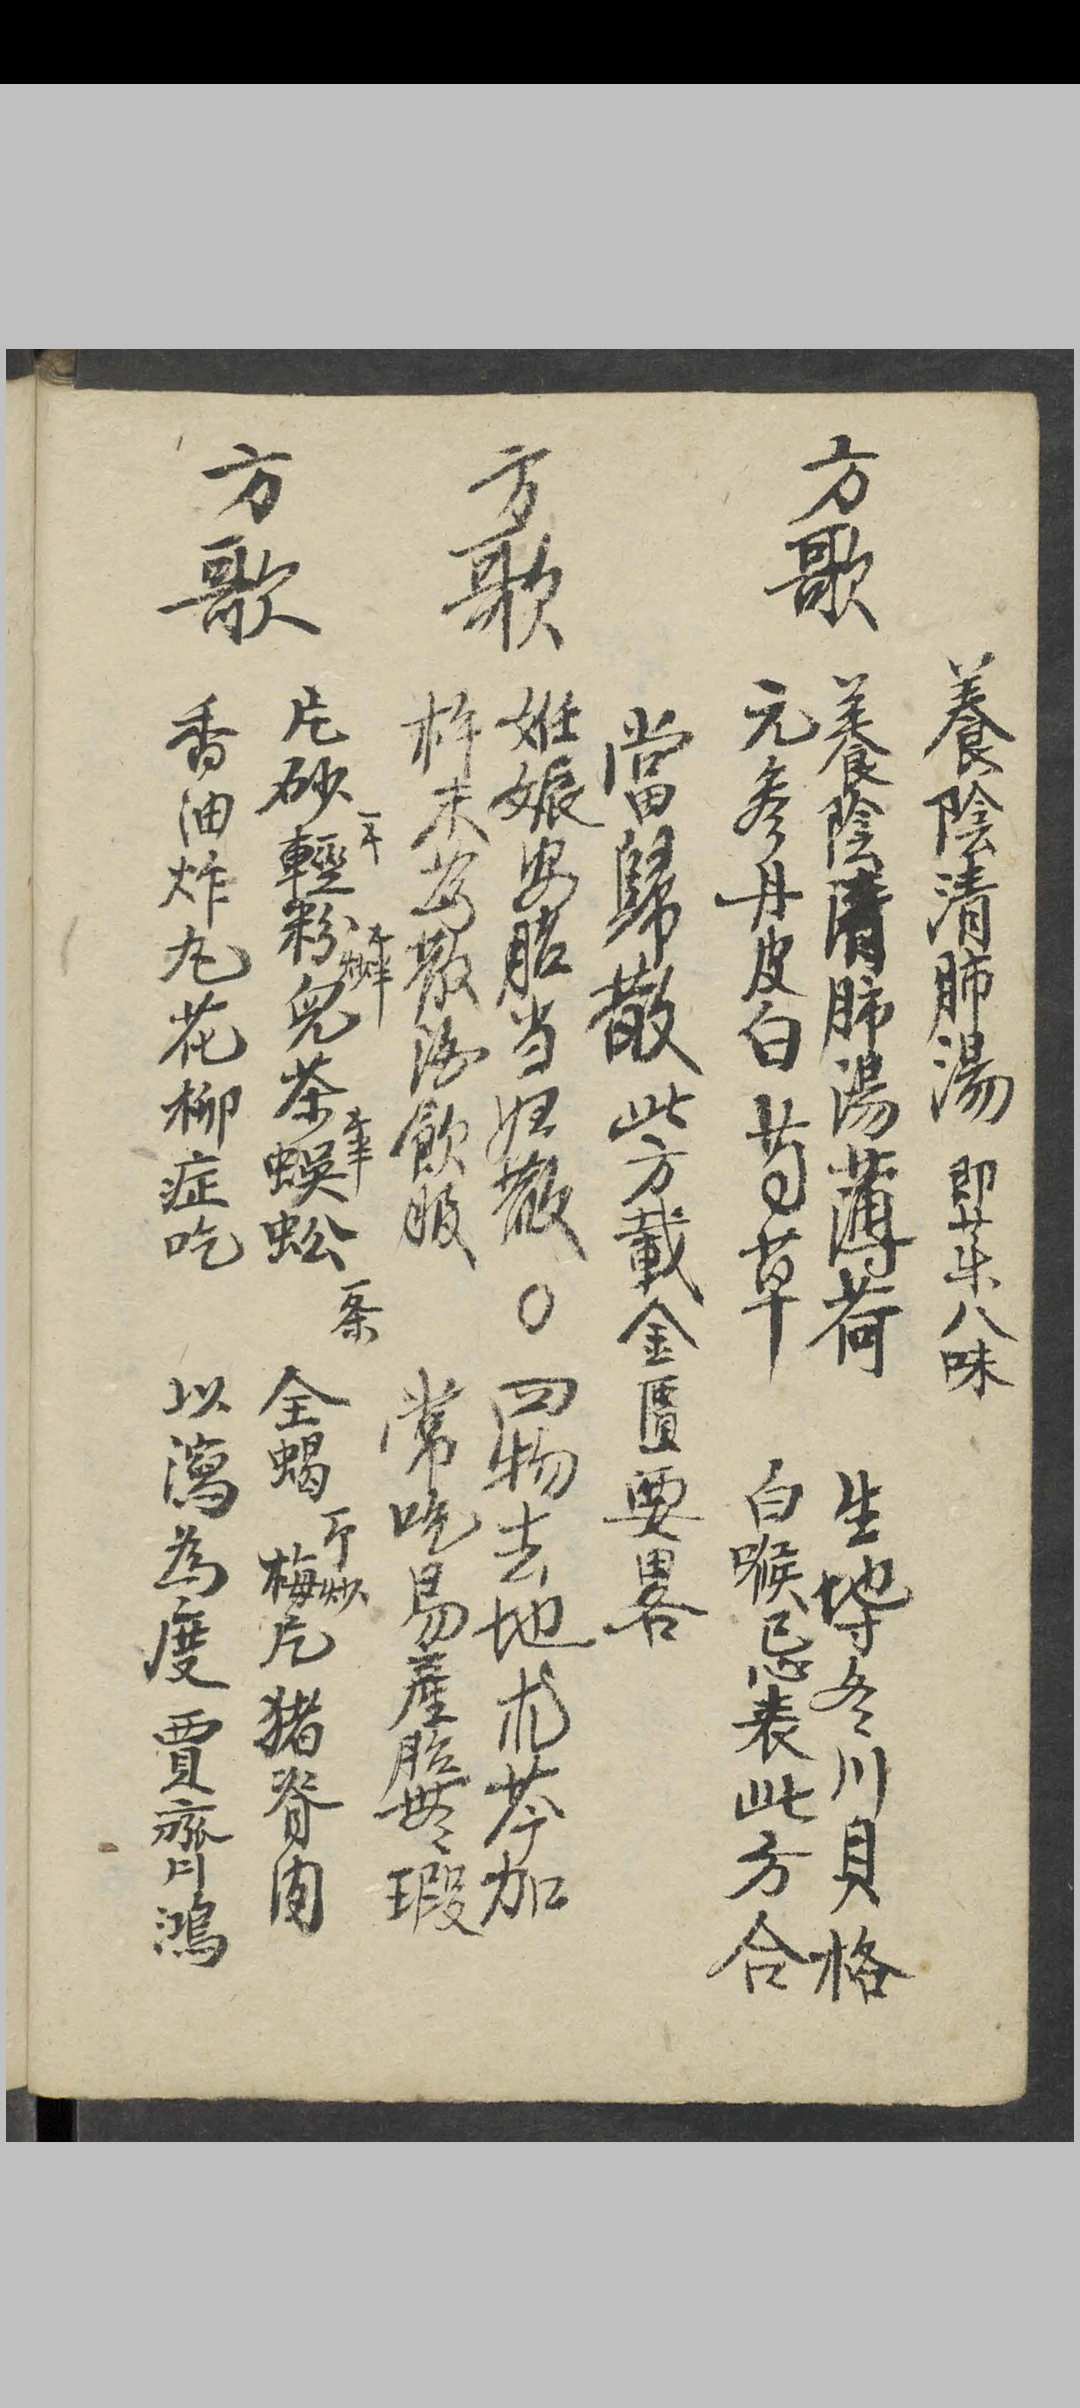 養陰清肺湯 即菜八味
方歌
養陰清肺湯薄荷 生地冬川貝格
元參丹皮白芍草 白喉忌表此方合
當歸散 此方載金匱要畧
方歌
妊娠安胎当歸散〇四物去地朮芩加
杵末為散酒飲服 常吃易產胎無瑕
方歌
片砂輕粉兒茶蜈蚣 一条 全蝎 炒 梅片猪脊肉
香油炸丸花柳症吃 以瀉為度 賈齊川鴻